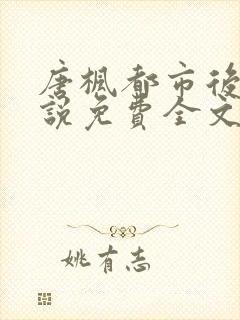 唐楓都市後
說免費全文
姚有志